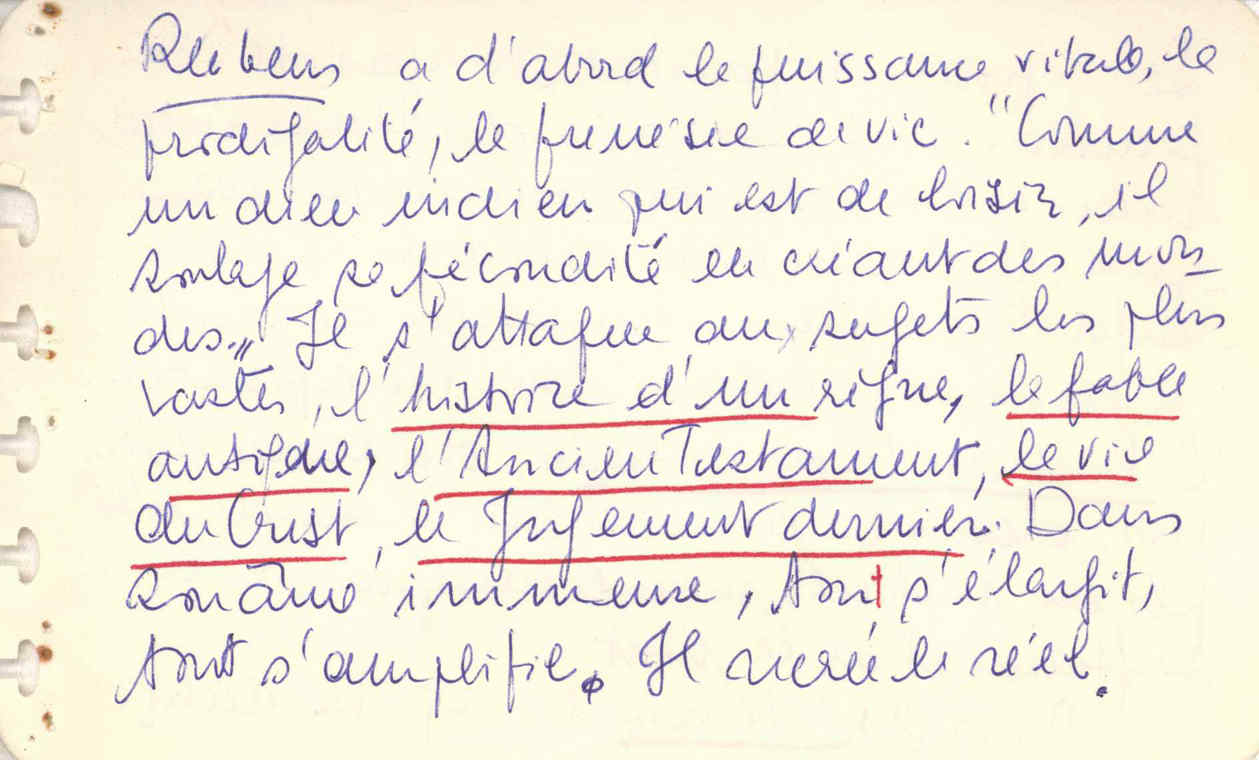 Rubens a d'abord la puissance vitale, la
prodigalité, la frénésie de vie. "Comme
un dieu indien qui est de loisir, il
soulage sa fécondité en créant des mon-
des." Il s'attaque aux sujets les plus
vastes, l'histoire d'un règne, la fable
antique, l'Ancien Testament, la vie
du Christ, le Jugement dernier. Dans
son âme immense, tout s'élargit,
tout s'amplifie. Il recrée le réel.